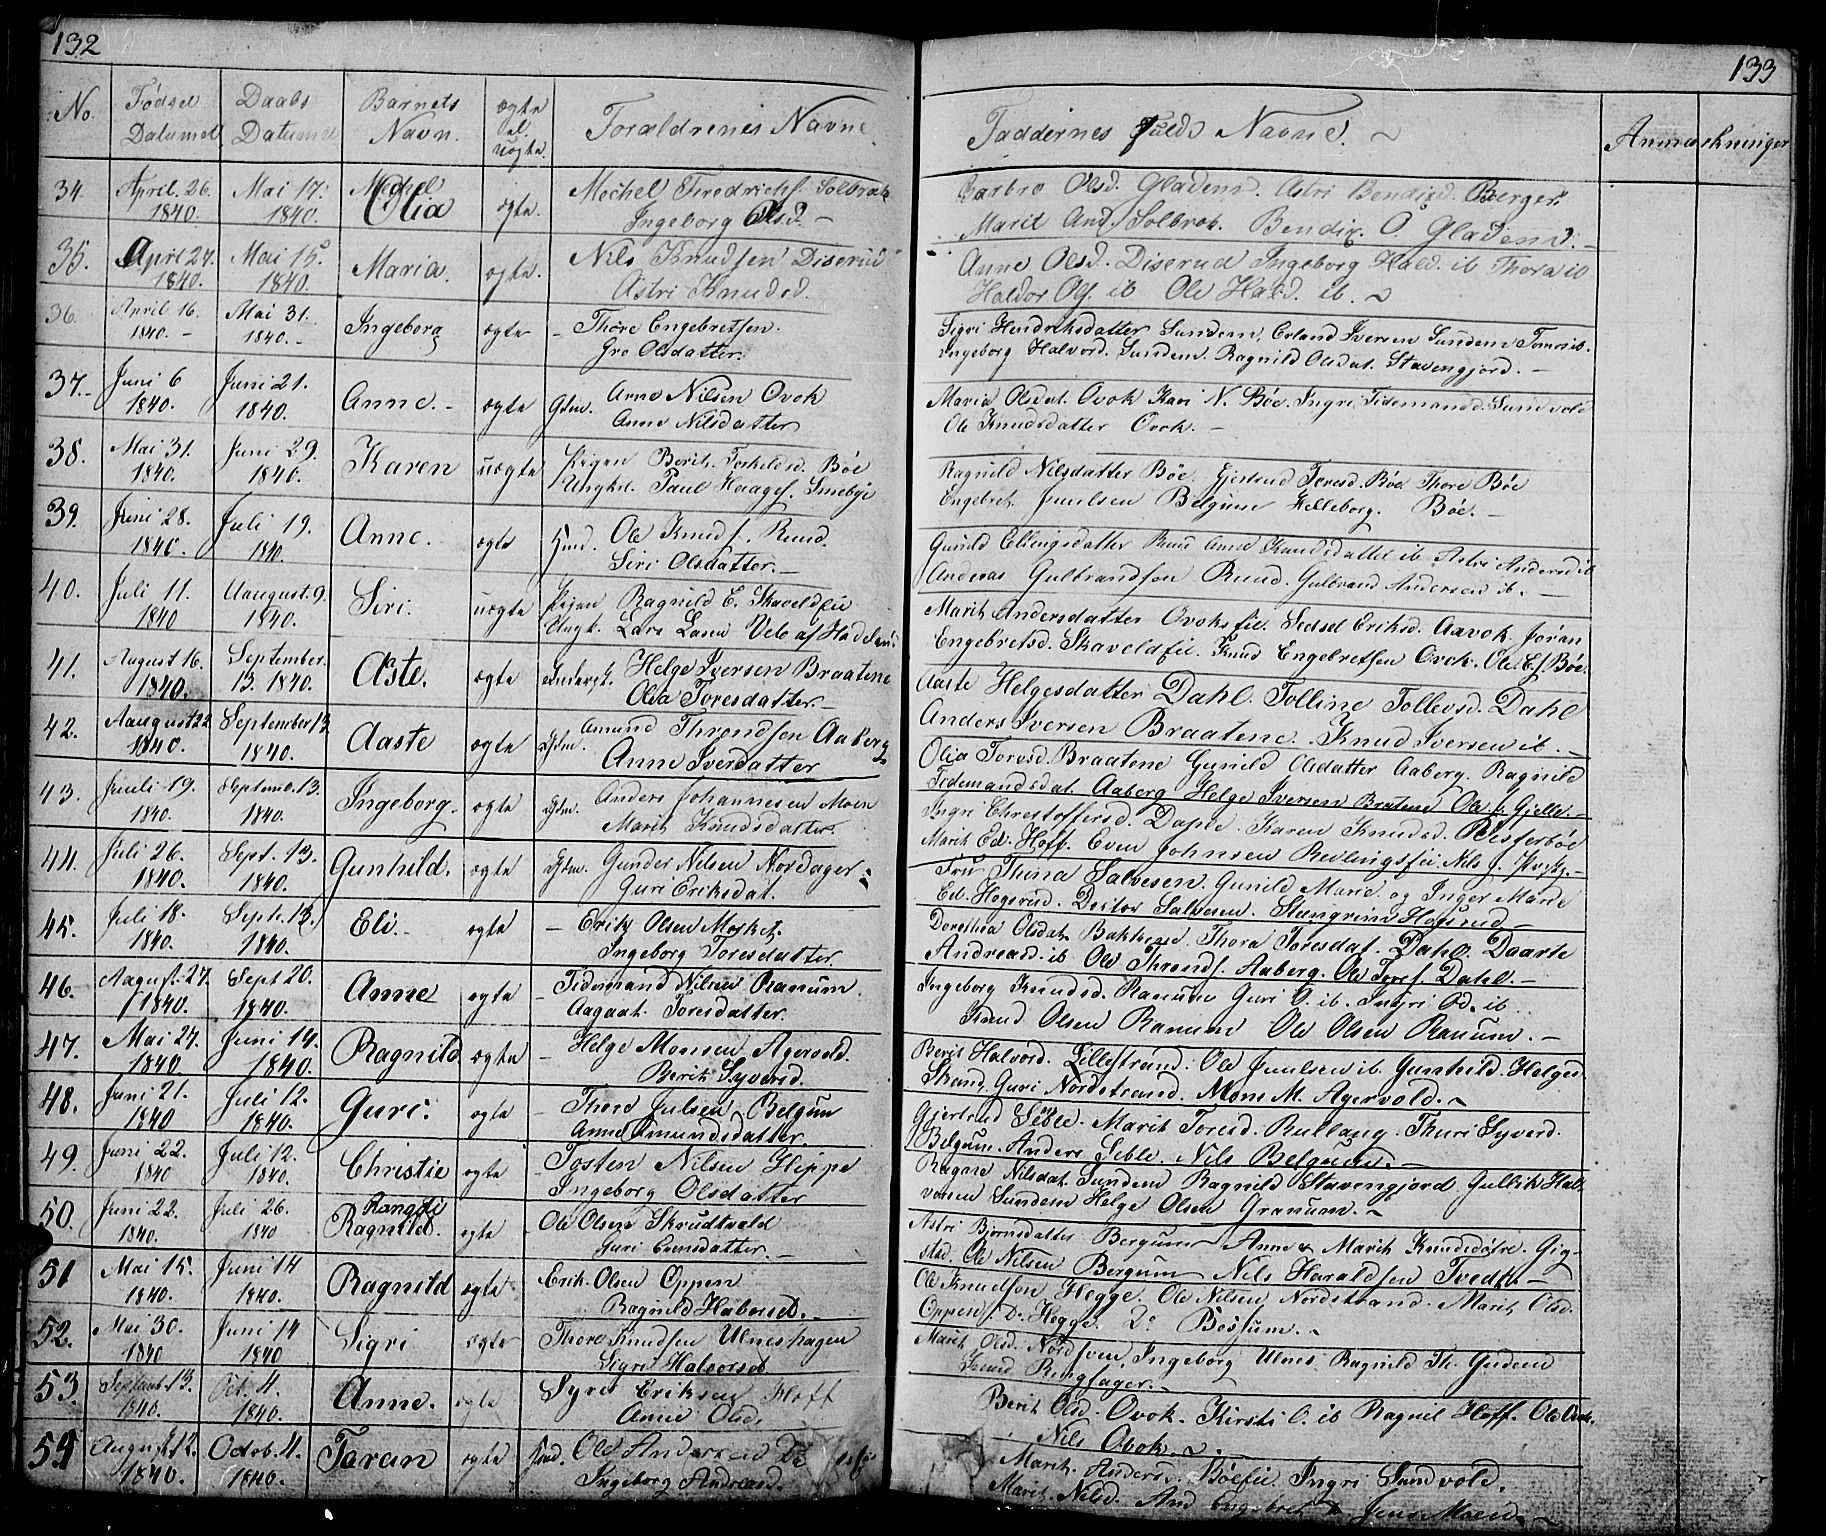 132
No. Fødsel Datum Daabs Datum Barnets Navn. ægte el. uægte. Foraldrenes Navne
34. April. 26. 1840. Mai 17. 1840. Olia ægte. Mechel Fredrichs. Solbrak
Ingeborg Olsd. –
35. April 27. 1840. Mai 15. 1840. Maria. ægte. Nils Knudsen Diserud
Astri Knudsd.
36. April 16. 1840. – Mai 31. 1840. – Ingeborg ægte – Thore Engebretsen.
Gro Olsdatter.
37. – Juni 6 1840. Juni 21. 1840. Anne. – ægte Gdm. Arne Nilsen Ovok
Anne Nilsdatter
38. Mai 31. 1840. Juni 29. 1840. Karen uægte Pigen Berit. Torkeldsd. Bøe
Ungkrl. Paul Haages. Smebye
39. Juni 28. 1840. Juli 19. 1840. Anne. ægte Hmd. Ole Knuds. Ruud.
Siri Olsdatter. –
40. Juli 11. 1840 Aaugust. 9. 1840. Siri. uægte Pigen Ragnild E. Skaveldeie
Ungk. Lars Lars Velo af Hadeland
41. August 16. 1840. September. 13. 1840. Aste. ægte Inderst. Helge Iversen Braatene
Olia Toresdatter. –
42. Aaugust 22 1840. September 13 1840. Aaste ægte Gdm. Amund Throndsen Aaberg
Anne Iversdatter
43. Juuli 19. 1840. Septemb. 13. 1840. Ingeborg. ægte Gdm. Anders Johannesen Moen
Marit Knudsdatter.
44. Juli 26. 1840. Sept. 13. 1840. Gunhild. ægte Gdm. Gunder Nilsen Nordager
Guri Eriksdat.
45. Juli 18. 1840. Septe. 13. 1840. Eli. – ægte – Erik Olsen Morket.
Ingeborg Toresdatter
46. Aagust. 27. 1840. Sept 20. 1840. Anne ægte – Tidemand Nilsen Ranum
Aagaat. Toresdatter.
47. Mai 27. 1840. Juni 14. 1840. Ragnild ægte – Helge Monsen Agervold.
Berit Syversd.
48. Juni 21. 1840 Juli 12. 1840. Guri. ægte – Thore Julsen Belgum
Anne Amundsdatter.
49. Juni 22. 1840 Juli 12. 1840. Christie ægte – Tosten Nilsen Hippe
Ingeborg Olsdatter
50. Juni 22. 1840. Juli 26. 1840 Rangdi Ragnild. ægte – Ole Olsen Skrudtvold
Guri Evensdatter. –
51 Mai 15. 1840. Juni 14 1840. Ragnild ægte Erik Olsen Oppen
Ragnild Halvorsd. –
52. Mai 30. 1840 Juni 14 1840 Sigri ægte Thore Knudsen Ulneshagen
Sigri Halvorsd
53 Septemb. 13. 1840. Oct. 4. 1840. Anne. ægte Syver Eriksen Hoff
Anne Olsd.
54 August 12. 1840. Octob. 4. 1840. Taran ægte Hmd. Ole Andersen
Ingeborg Andreasd.
133
Faddernes fulde Navne. ~ Anmærkninger
Barbro Olsd. Gladens. Astri Bendixd. Berger.
Marit And. Solbrok. Bendix. O. Gladens. –
Anne Olsd. Diserud Ingeborg Hald. ib Thora ib
Haldor Ols. ib Ole Hald. ib. ~
Sigri Hendriksdatter Sundem, Erland Iversen Sundem Tomas ib.
Ingeborg Halvord. Sundem. Ragnild Olsdat. Stavengjord. –
Maria Olsdat. Ovok Kari N. Bøe. Ingri Tidemandsd. Sundvold
Ole Knudsdatter Ovok. –
Ragnild Nilsdatter Bøe. Gjertrud Toresd. Bøe Thore Bøe
Engebret Juulsen Belgum Helleborg. Bøe. –
Gunild Ellingsdatter Ruu Anne Knudsdatter ib. Astri Andersd ib
Andreas Gulbrandsen Ruud. Gulbrand Andersen ib. –
Marit Andersdatter Ovokseie. Sedsel Eriksd. Aavok. Jøran
Engebretsd. Skaveldeie. Knud Engebretsen Ovok. Ole E. Bøe.
Aaste Helgesdatter Dahl. Tolline Tollevsd. Dahl
Anders Iversen Braatene. Knud Iversen ib. –
Olia Toresd. Braatene Gunild Olsdatter Aaberg. Ragnild
Tidemandsdat. Aaberg Helge Iversen Bratene Ole Gjelle. –
Ingri Chrestoffersd. Dahle. Karen Knudsd. Vesterbøe
Marit Ed. Hoff. Even Johnsen Revlingseie. Nils J. –
Fru Thina Salvesen. Gunild Marie og Inger Marie
Ed. Hogsrud. Docter Salvesen. Stengrim Hogsrud –
Dorethea Olsdat Bakkene. Thora Toresdat. Dahl. Daarte
Andreasd. ib Ole Thronds. Aaberg. Ole Tores. Dahl. –
Ingeborg Knudsd. Ranum Guri O. ib. Ingri Od. ib
Knud Olsen Ranum Ole Olsen Ranum. –
Berit Halvord. Lillestrand. Ole Juulsen ib. Gunhild. Helges.
Strang. Guri Nordstrand. Mons M. Agervold. ~
Gjertrud Seble. Marit Toresd. Rullang. Thuri Syverd.
Belgum. Anders Seble. Nils Belgum. –
Ragne Nilsdat. Sundem Ragnild Stavengjord Gullik Hal-
vorsen Sundem Helge Olsen Granum. ~
Astri Bjørnsdatter Bergum Anne & Marit Knudsdøtre. Gig-
stad. Ole Nilsen Bergum Nils Haraldsen Tvedt. –
Ole Knudsen Hegge. Ole Nilsen Nordstrand. Marit Olsd.
Oppen. Do. Hegge. Do Bøsum. ~
Marit Olsd. Nordsven, Ingeborg Ulnes. Ragnild Th. Gudem
Knud Ringsager. –
Berit Olsd. Ovok. Kirsti O. ib Ragnil Hoff. Ole Ovok.
Nils Ovok. ~
Marit. Andersd. Bøeseie Ingri Sundvold.
Marit. Nilsd. And Engebret Jens Moen. ~